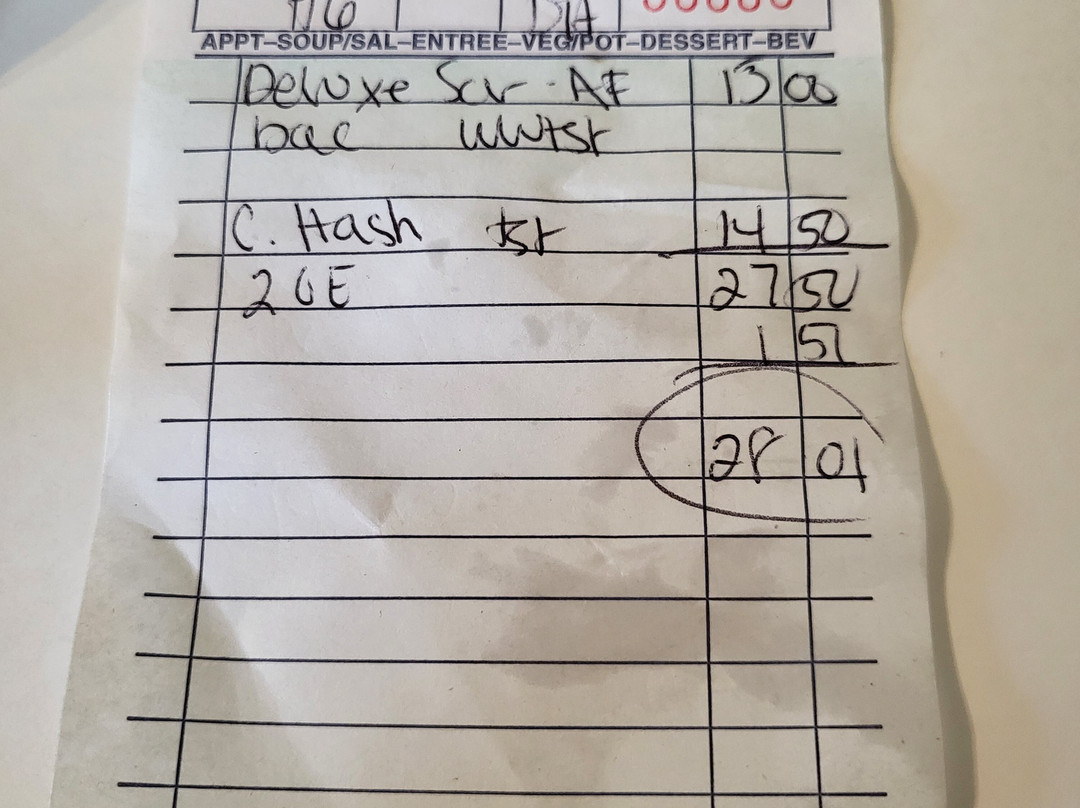 7/6 DIA 00000
APPT–SOUP/SAL–ENTREE–VEG/POT–DESSERT–BEV
Deluxe Scr - AF 13 00
bac WWtst
C. Hash tst 14 50
2 OE 27 50
1 51
28 01